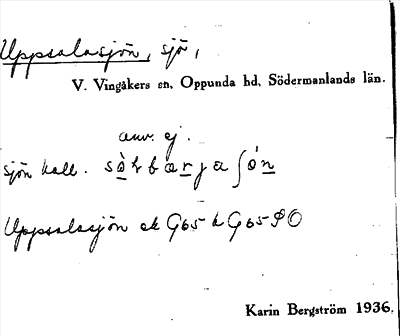 Uppsalasjön, sjö,
V. Vingåkers sn, Oppunda hd, Södermanlands län.
anv. ej.
sjön kall.
Uppsalasjön ek G65 h G65 SO
Karin Bergström 1936.